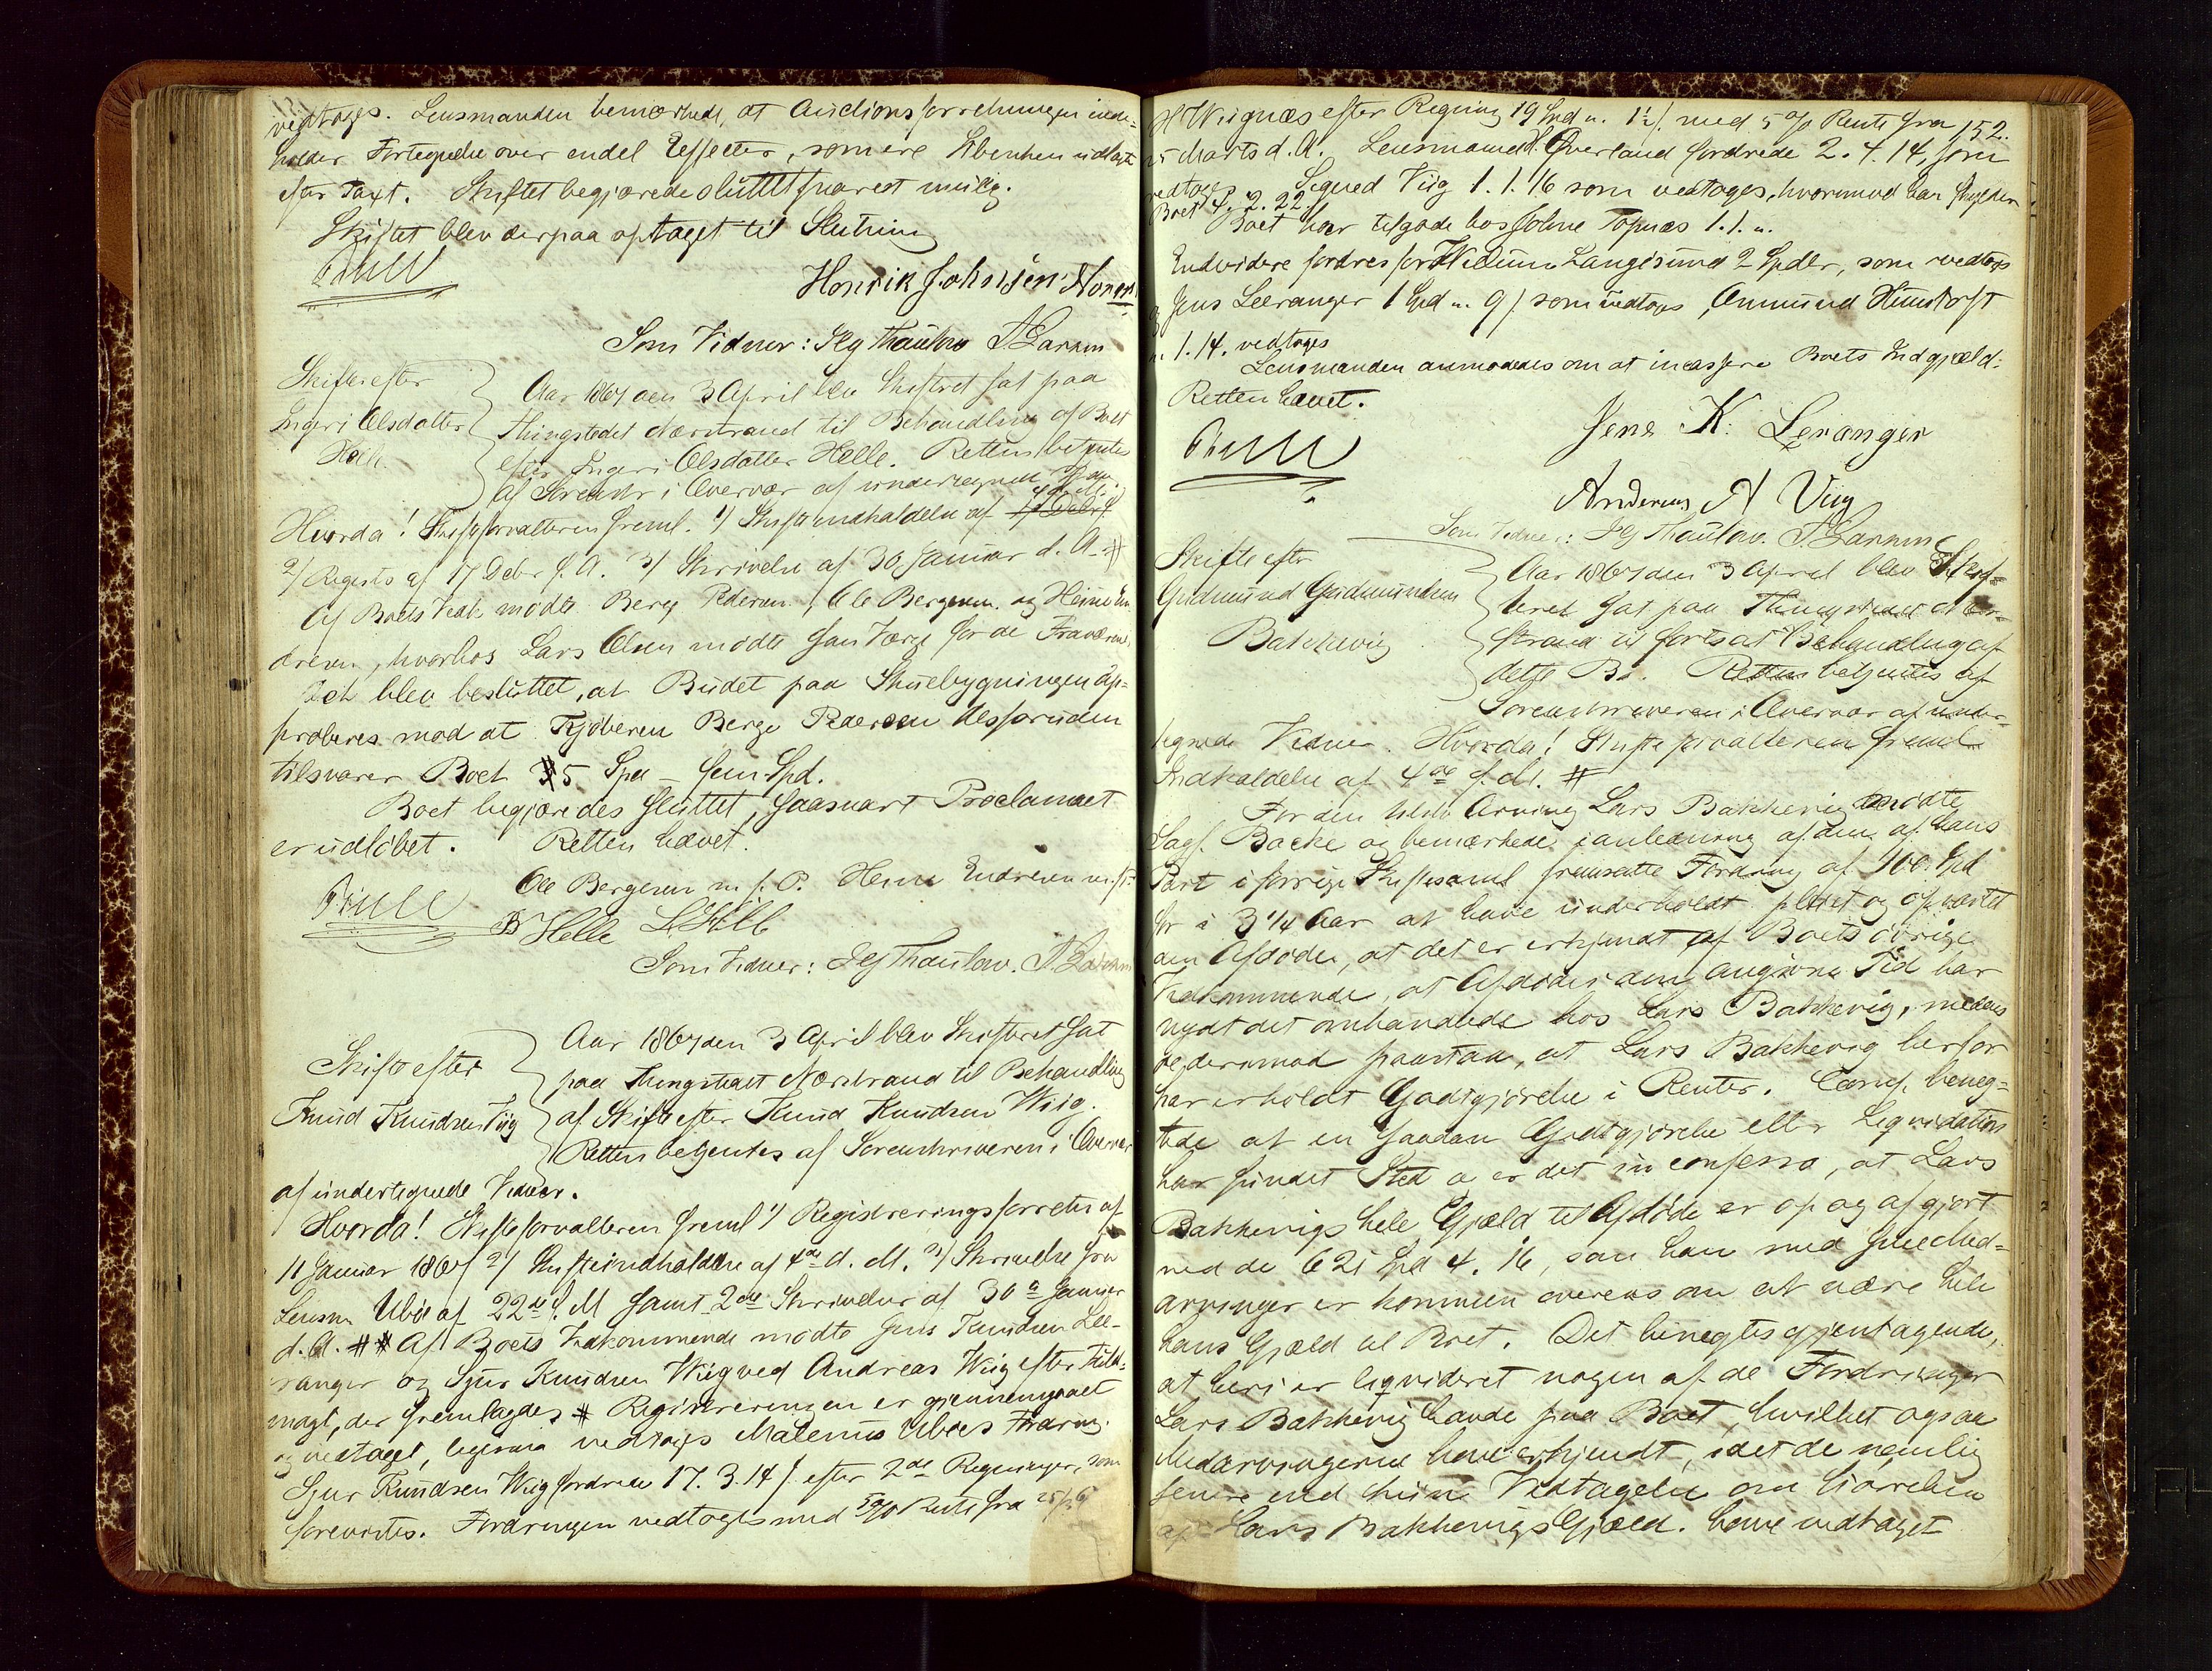 vedtoges. Lensmanden bemærkede, at Auctionsforretningen inde-
holder Fortegnelse over endel Effecter, som ere Ekenken udlagte
efter Taxt. Skiftet begjærede sluttet snarest mulig.
Skiftet blev derpaa optaget til Slutning
Henrik Johnsen
Som Vidner: Jlg Thaulow A Larsen
Skifte efter
Ingeri Olsdatter
Helle
Aar 1867 den 3 April blev Skifteret sat paa
Thingstedet Nærstrand til Behandling af Boet
efter Ingeri Olsdatter Helle. Retten betjentes
af Sorenskr i Overvær af undertegnede
Hvorda! Skifteforvalteren freml. 1) Skifteindkaldelse af
2) Registr af 17 Debr f. A. 3) Skrivelse af 30 Januar d. A. #
Af Boets Vedk mødte Berge Pedersen, Ole Bergesen og Heine En
dresen, hvorhos Lars Olsen mødte som Værge for de Fraværende
Det blev besluttet, at Budet paa Stuebygningen ap-
proberes mod at Kjøberen Berge Pedersen desforuden
tilsvarer Boet 5 Spd - fem Spd.
Boet begjæredes sluttet, saasnart Proclamaet
er udløbet. Retten hævet.
Ole Bergesen m. f. P. Heine Endresen m. f. P.
B Helle L Helle
Som Vidner: Jlg Thaulow. A. Larsen
Skifte efter
Knud Knudsen Viig
Aar 1867 den 3 April blev Skifteret sat
paa Thingstedet Nærstrand til Behandling
af Skifte efter Knud Knudsen Wiig.
Retten betjentes af Sorenskriveren i Overvær
af undertegnede Vidner.
Hvorda! Skifteforvalteren freml 1) Registreringsforretn af
11 Januar 1867 2) Skifteindkaldelse af 4de d. M. 3) Skrivelse fra
Lensm Uboe af 22de f. M samt 2de Skrivelser af 30te Januar
d. A. ## Af Boets Vedkommende mødte Jens Knudsen Lee-
ranger og Sjur Knudsen Wiig ved Andreas Wiig efter Fuld-
magt, der fremlagdes # Registreringen er gjennemgaaet
og vedtaget, ligesaa vedtoges Malenus Uboes Fordring.
Sjur Knudsen Wiig fordrede 17. 3. 14 s. efter 2de Regninger, som
forevistes. Fordringen vedtoges med 5% Rente fra
152.
H Wiignæs efter Regning 19 Spd u. 1½ s. med 5% Rente fra
25 Marts d. A. Lensmand H. Øverland fordrede 2. 4. 14, som
vedtoges. Sigued Viig 1. 1. 16 som vedtages, hvorimod han skylder
Boet 4. 2. 22 s.
Boet har tilgode hos Johne Topnæs 1. 1. u.
Endvidere fordres for Langesund 2 Spdlr, som vedtoges
og Jens Leeranger 1 Spd u. 9 s. som vedtoges, Amund Himstoft
u. 1. 14. vedtoges
Lensmanden anmodedes om at incassere Boets Indgjæld.
Retten hævet.
Jens K. Leranger
Andreas A Viig
Som Vidner: Jlg Thaulow. A. Larsen
Skifte efter
Gudmund Gudmundsen
Bakkevig
Aar 1867 den 3 April blev Skif-
teret sat paa Thingstedet Nær-
strand til fortsat Behandling af
dette Bo. Retten betjentes af
Sorenskriveren i Overvær af under-
tegnede Vidner. Hvorda! Skifteforvalteren freml
Indkaldelse af 4de f. M. #
For den Arving Lars Bakkevig mødte
Sagf. Backe og bemærkede i anledning af den af hans
Part i forrige Skiftesaml fremsatte Fordring af 100 Spd
for i 3 1/4 Aar at have underholdt pleiet og opvartet
den Afdøde, at det er erkjendt af Boets øvrige
Vedkommende, at Afdøde i den angivne Tid har
nydt det omhandlede hos Lars Bakkevig, medens
de derimod paastaa, at Lars Bakkevig herfor
har erholdt Godtgjørelse i Renter. Comp. beneg-
tede at en saadan Godtgjørelse eller Liqvidation
har fundet Sted og er det in confesso, at Lars
Bakkevigs hele Gjæld til Afdøde er op og afgjort
ved de 621 Spd 4. 16, som han med sine Med-
arvinger er kommen overens om at være hele
hans Gjæld til Boet. Det benegtes gjentagende,
at heri er liqvideret nogen af de Fordringer
Lars Bakkevig havde paa Boet, hvilket ogsaa
Medarvingerne have erkjendt, idet de nemlig
senere end hiin Vedtagelse om Størrelsen
af Lars Bakkevigs Gjæld. have vedtaget